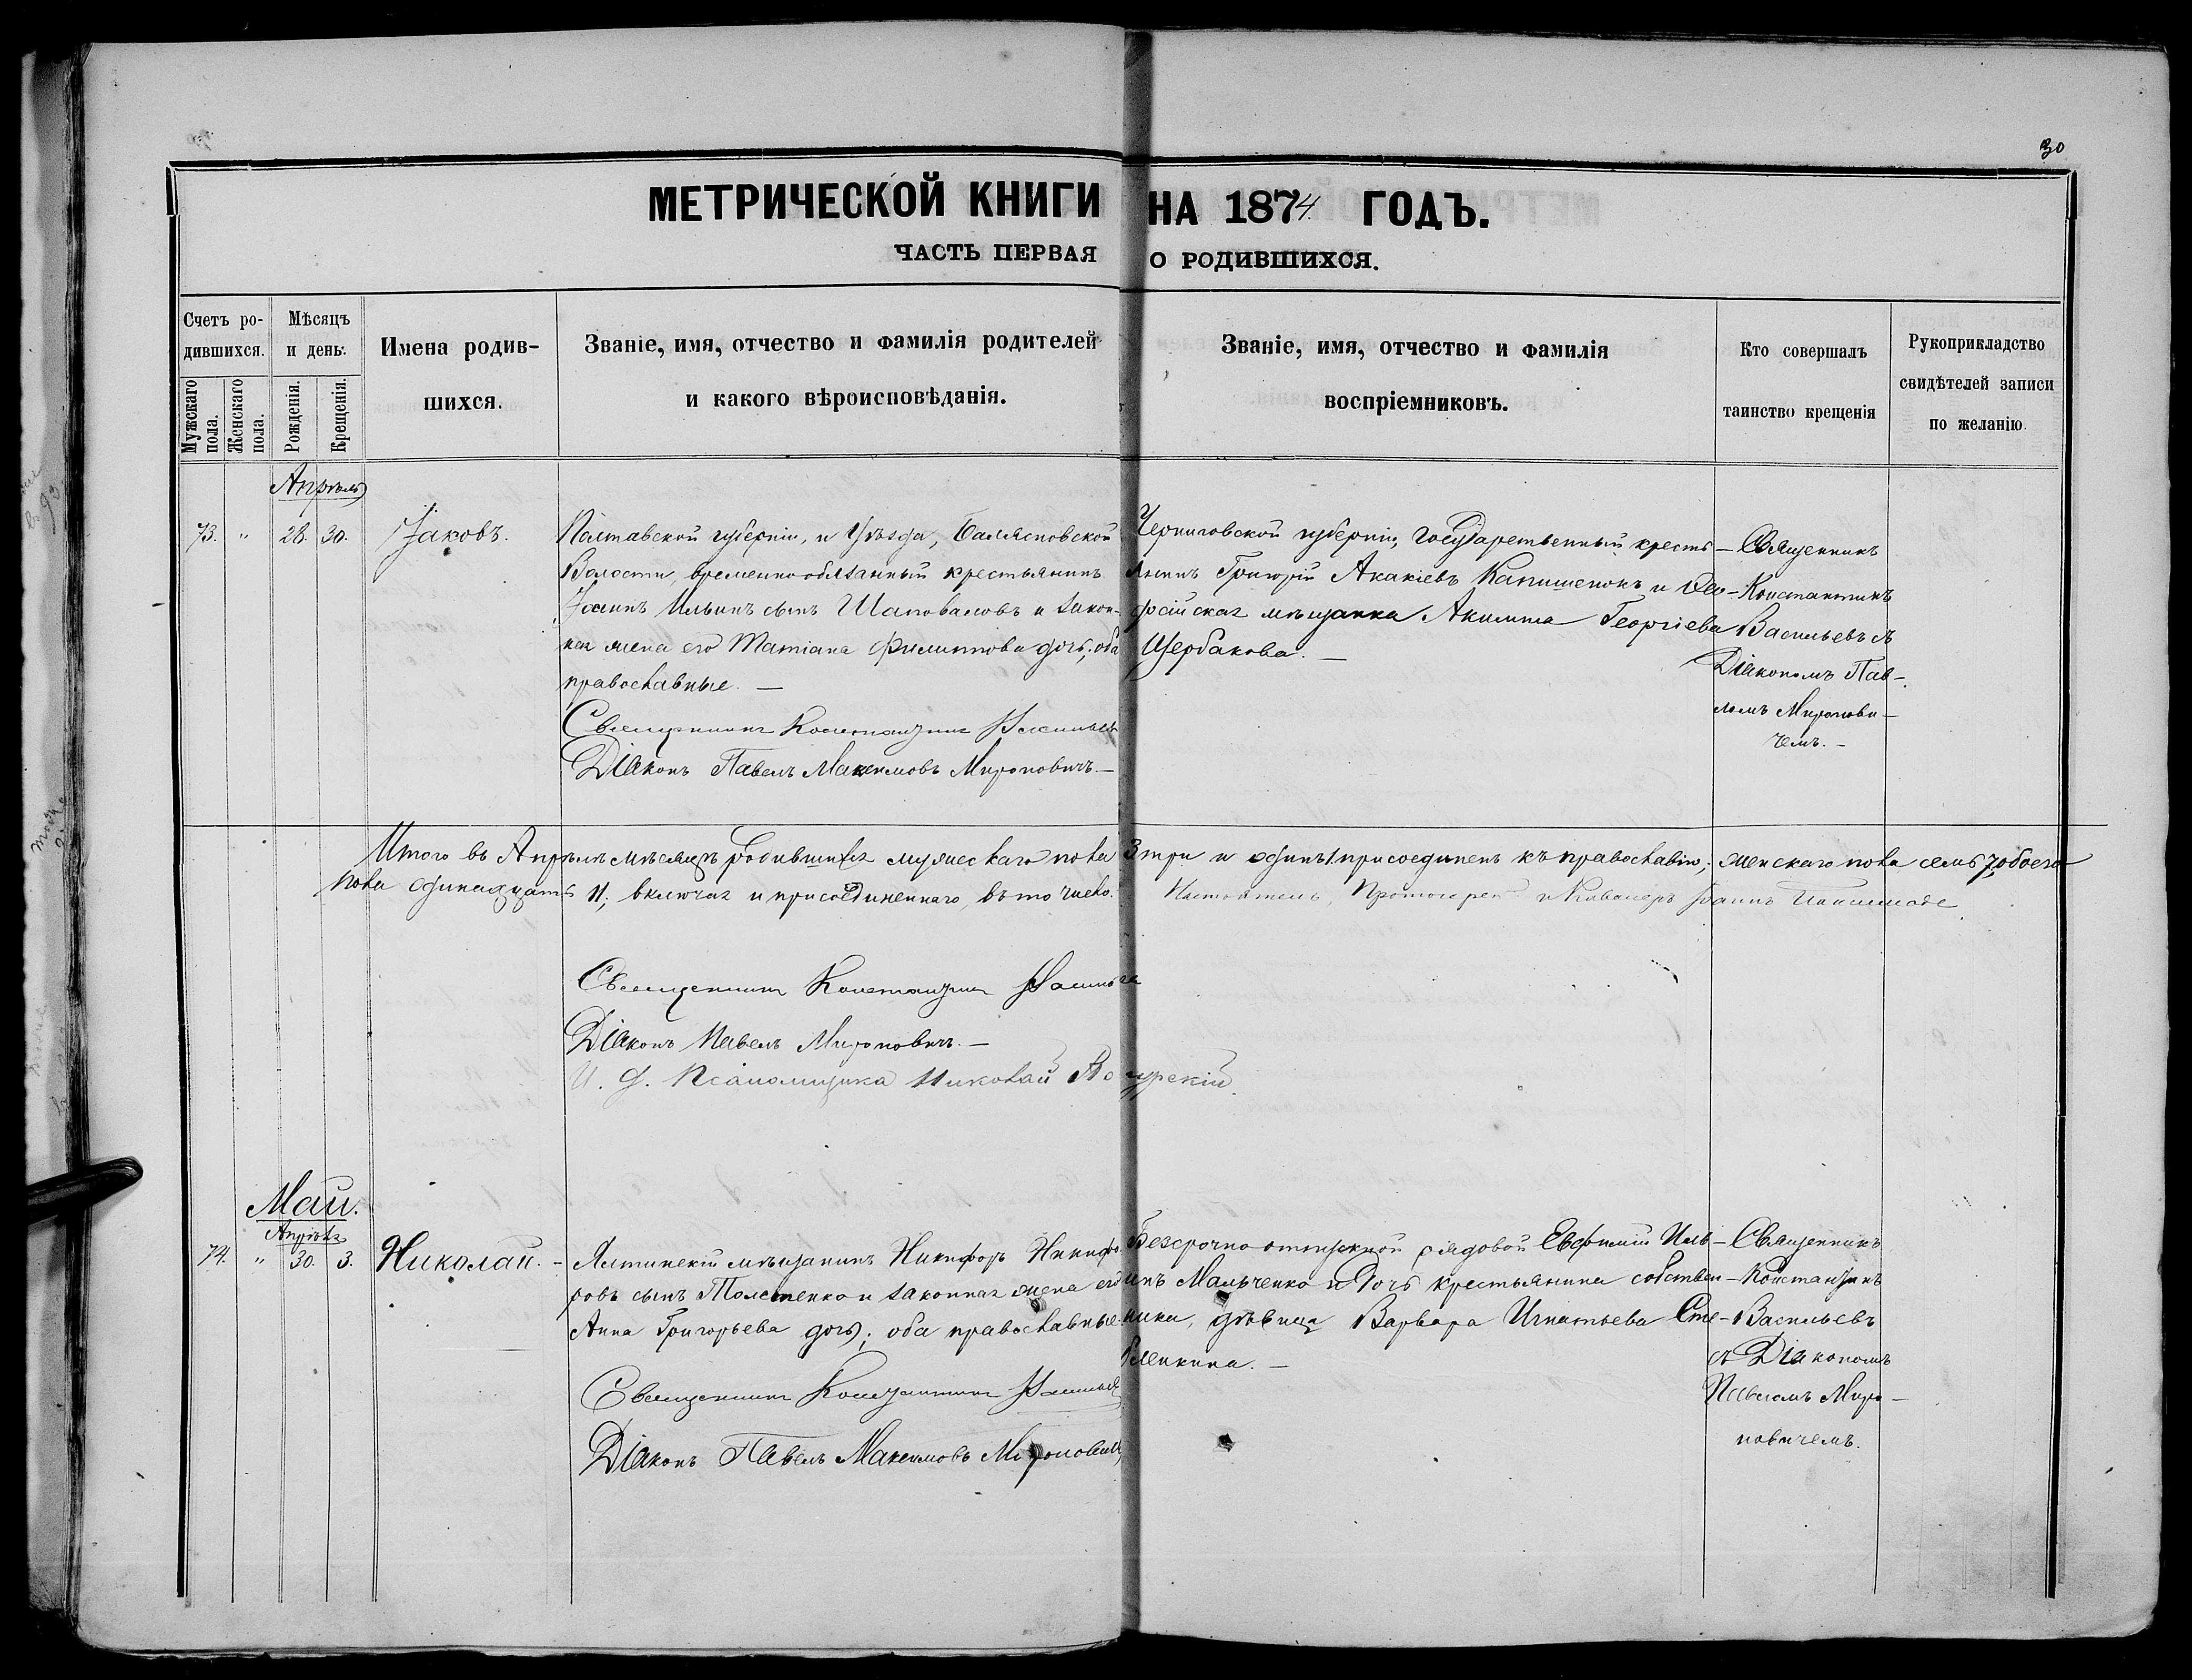 30
МЕТРИЧЕСКОЙ КНИГИ НА 1874 ГОДЪ.
ЧАСТЬ ПЕРВАЯ О РОДИВШИХСЯ.
Счетъ ро-
дившихся.
Мужскаго пола.
Женскаго пола.
Мѣсяцъ
и день.
Рожденія.
Крещенія.
Имена родив-
шихся.
Званіе, имя, отчество и фамилія родителей
и какого вѣроисповѣданія.
Званіе, имя, отчество и фамилія
воспріемниковъ.
Кто совершалъ
таинство крещенія
Рукоприкладство
свидѣтелей записи
по желанію.
Апрѣль
73. " 28. 30. Іаковъ.
Полтавской губерніи, и Уѣзда, Балясновской
Волости, временнообязанный крестьянинъ
Іоаннъ Ильинъ сынъ Шаповаловъ и закон-
ная жена его Татіана Филиппова дочь; оба
православные. —
Священникъ Константинъ Васильевъ
Діаконъ Павелъ Максимовъ Мироновичъ. —
Черниговской губерніи, государственный кресть-
янинъ Григорій Акакіевъ и Ѳео-
досійская мѣщанка Акилина Георгіева
Щербакова. —
Священникъ
Константинъ
Васильевъ съ
Діакономъ Пав-
ломъ Миронови-
чемъ. —
Итого въ Апрѣлѣ мѣсяцѣ родившихся мужескаго пола 3 три и одинъ 1 присоединенъ къ православію; женскаго пола семь 7, обоего
пола одинадцать 11; включая и присоединеннаго, въ то число. Настоятель, Протоіерей и Кавалеръ Іоаннъ
Священникъ Константинъ Васильевъ
Діаконъ Павелъ Мироновичъ. —
И. д. Псаломщика Николай
Май.
Апрѣля
74. " 30. 3. Николай. -
Ялтинскій мѣщанинъ Никифоръ Никифо-
ровъ сынъ Толстенко и законная жена его
Анна Григорьева дочь; оба православные.
Священникъ Константинъ Васильевъ
Діаконъ Павелъ Максимовъ Мироновичъ
Безсрочно отпускной рядовой Евфимій Иль-
инъ Мальченко и Дочь крестьянина собствен-
ника, дѣвица Варвара Игнатьева Сте-
блинкина. —
Священникъ
Константинъ
Васильевъ
съ Діакономъ
Павломъ Миро-
новичемъ.